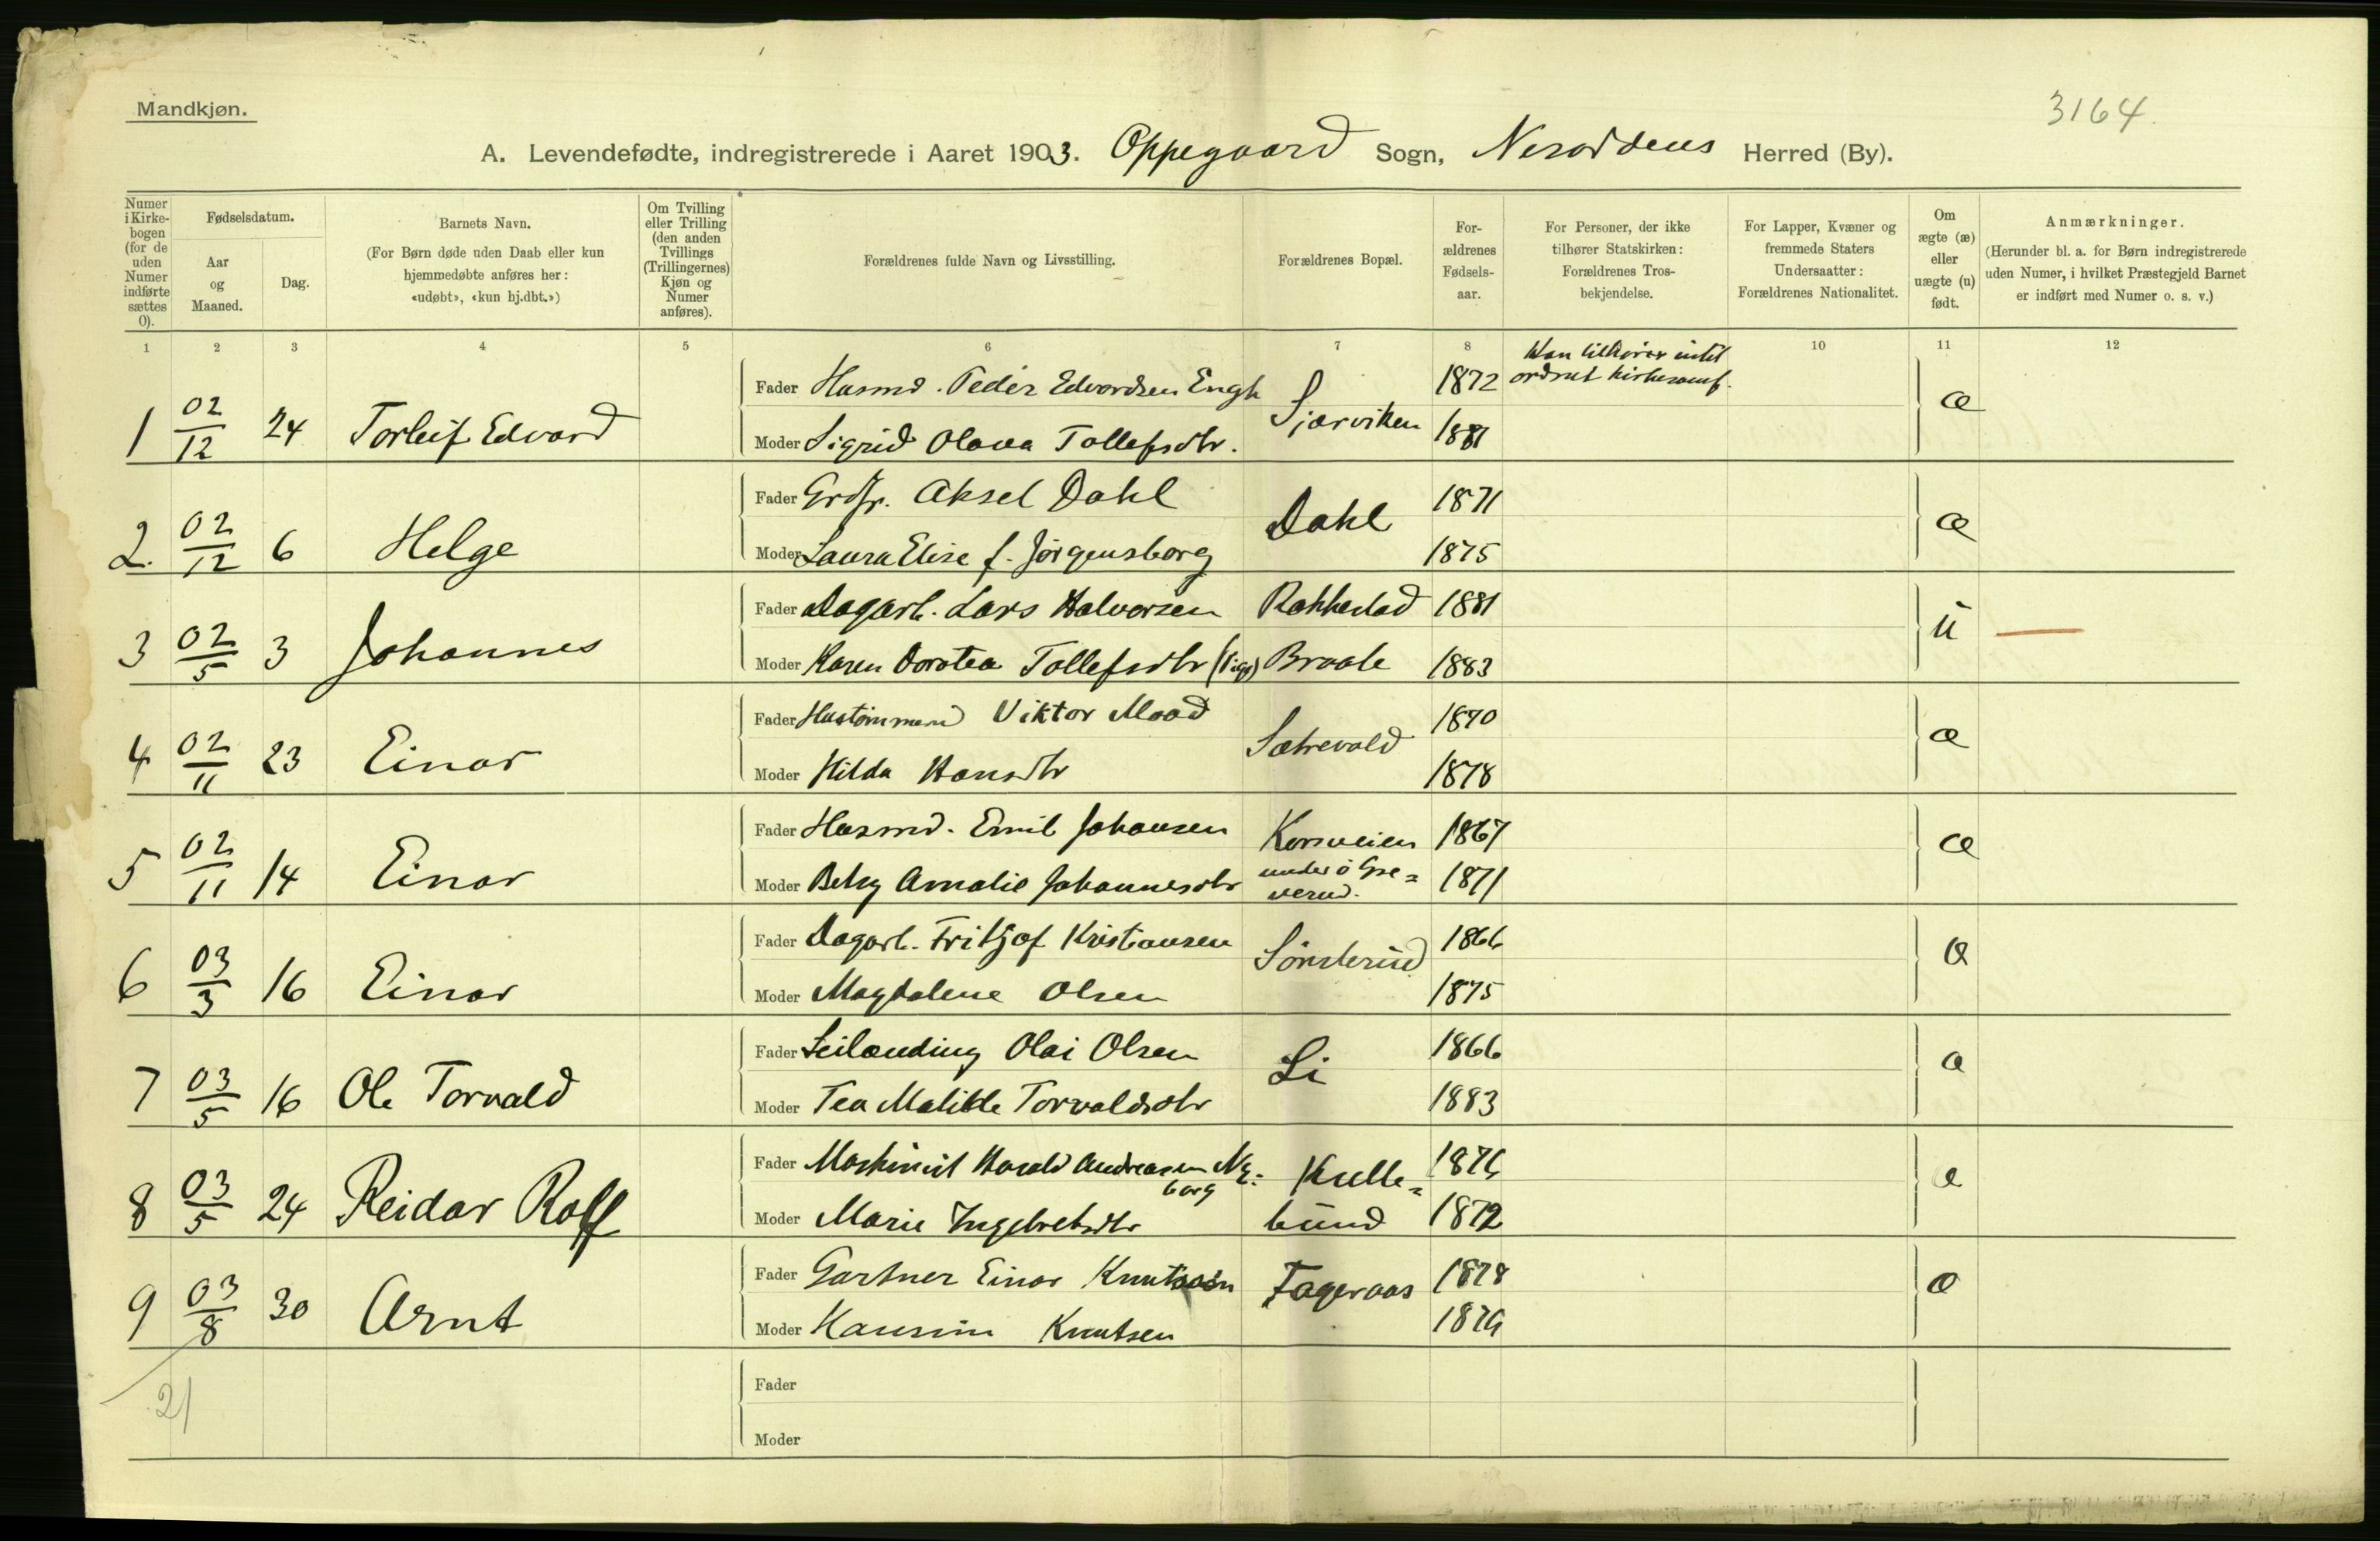 Mandkjøn.
3164.
A. Levendefødte, indregistrerede i Aaret 1903. Oppegaard Sogn, Nesoddens Herred (By).
Numer i Kirkebogen (for de uden Numer indførte sættes 0).
Fødselsdatum.
Aar og Maaned.
Dag.
Barnets Navn.
(For Børn døde uden Daab eller kun
hjemmedøbte anføres her:
«udøbt», «kun hj.dbt.»)
Om Tvilling
eller Trilling
(den anden
Tvillings
(Trillingernes)
Kjøn og
Numer
anføres).
Forældrenes fulde Navn og Livsstilling.
Forældrenes Bopæl.
For-
ældrenes
Fødsels-
aar.
For Personer, der ikke
tilhører Statskirken:
Forældrenes Tros-
bekjendelse.
For Lapper, Kvæner og
fremmede Staters
Undersaatter:
Forældrenes Nationalitet.
Om
ægte (æ)
eller
uægte (u)
født.
Anmærkninger.
(Herunder bl. a. for Børn indregistrerede
uden Numer, i hvilket Præstegjeld Barnet
er indført med Numer o. s. v.)
1 2 3 4 5 6 7 8 10 11 12
Han tilhører intet
ordnet kirkesamf.
Fader Husmd. Peder Edvardsen Engh 1872
1 02/12 24 Torleif Edvard Sjærviken æ
Moder Sigrid Olava Tollefsdtr. 1881
Fader Grdfr. Aksel Dahl 1871
2. 02/12 6 Helge Dahl æ
Moder Laura Elise f. Jørgensborg 1875
Fader Dagarb. Lars Halvorsen Rakkestad 1881
3 02/5 3 Johannes u
Moder Karen Dorotea Tollefsdtr (Pige) Braate 1883
Fader Hustømmermd Viktor Maad 1870
4 02/11 23 Einar Sætrevold æ
Moder Hilda Hansdtr 1878
Fader Husmd. Emil Johansen Korsveien 1867
5 02/11 14 Einar æ
Moder Betsy Amalie Johannesdtr under ö Gre= 1871
verud.
Fader Dagarb. Fritjof Kristiansen 1866
6 03/3 16 Einar Sønsterud æ
Moder Magdalene Olsen 1875
Fader Leilænding Olai Olsen 1866
7 03/5 16 Ole Torvald Li æ
Moder Tea Matilde Torvaldsdtr 1883
Fader Maskinist Harald Andreasen Ny= Kulle= 1876
borg
8 03/5 24 Reidar Rolf æ
Moder Marie Ingebretsdtr bund 1872
Fader Gartner Einar Knutsen Fageraas 1878
9 03/8 30 Arnt æ
Moder Hansine Knutsen 1879
Fader
21
Moder